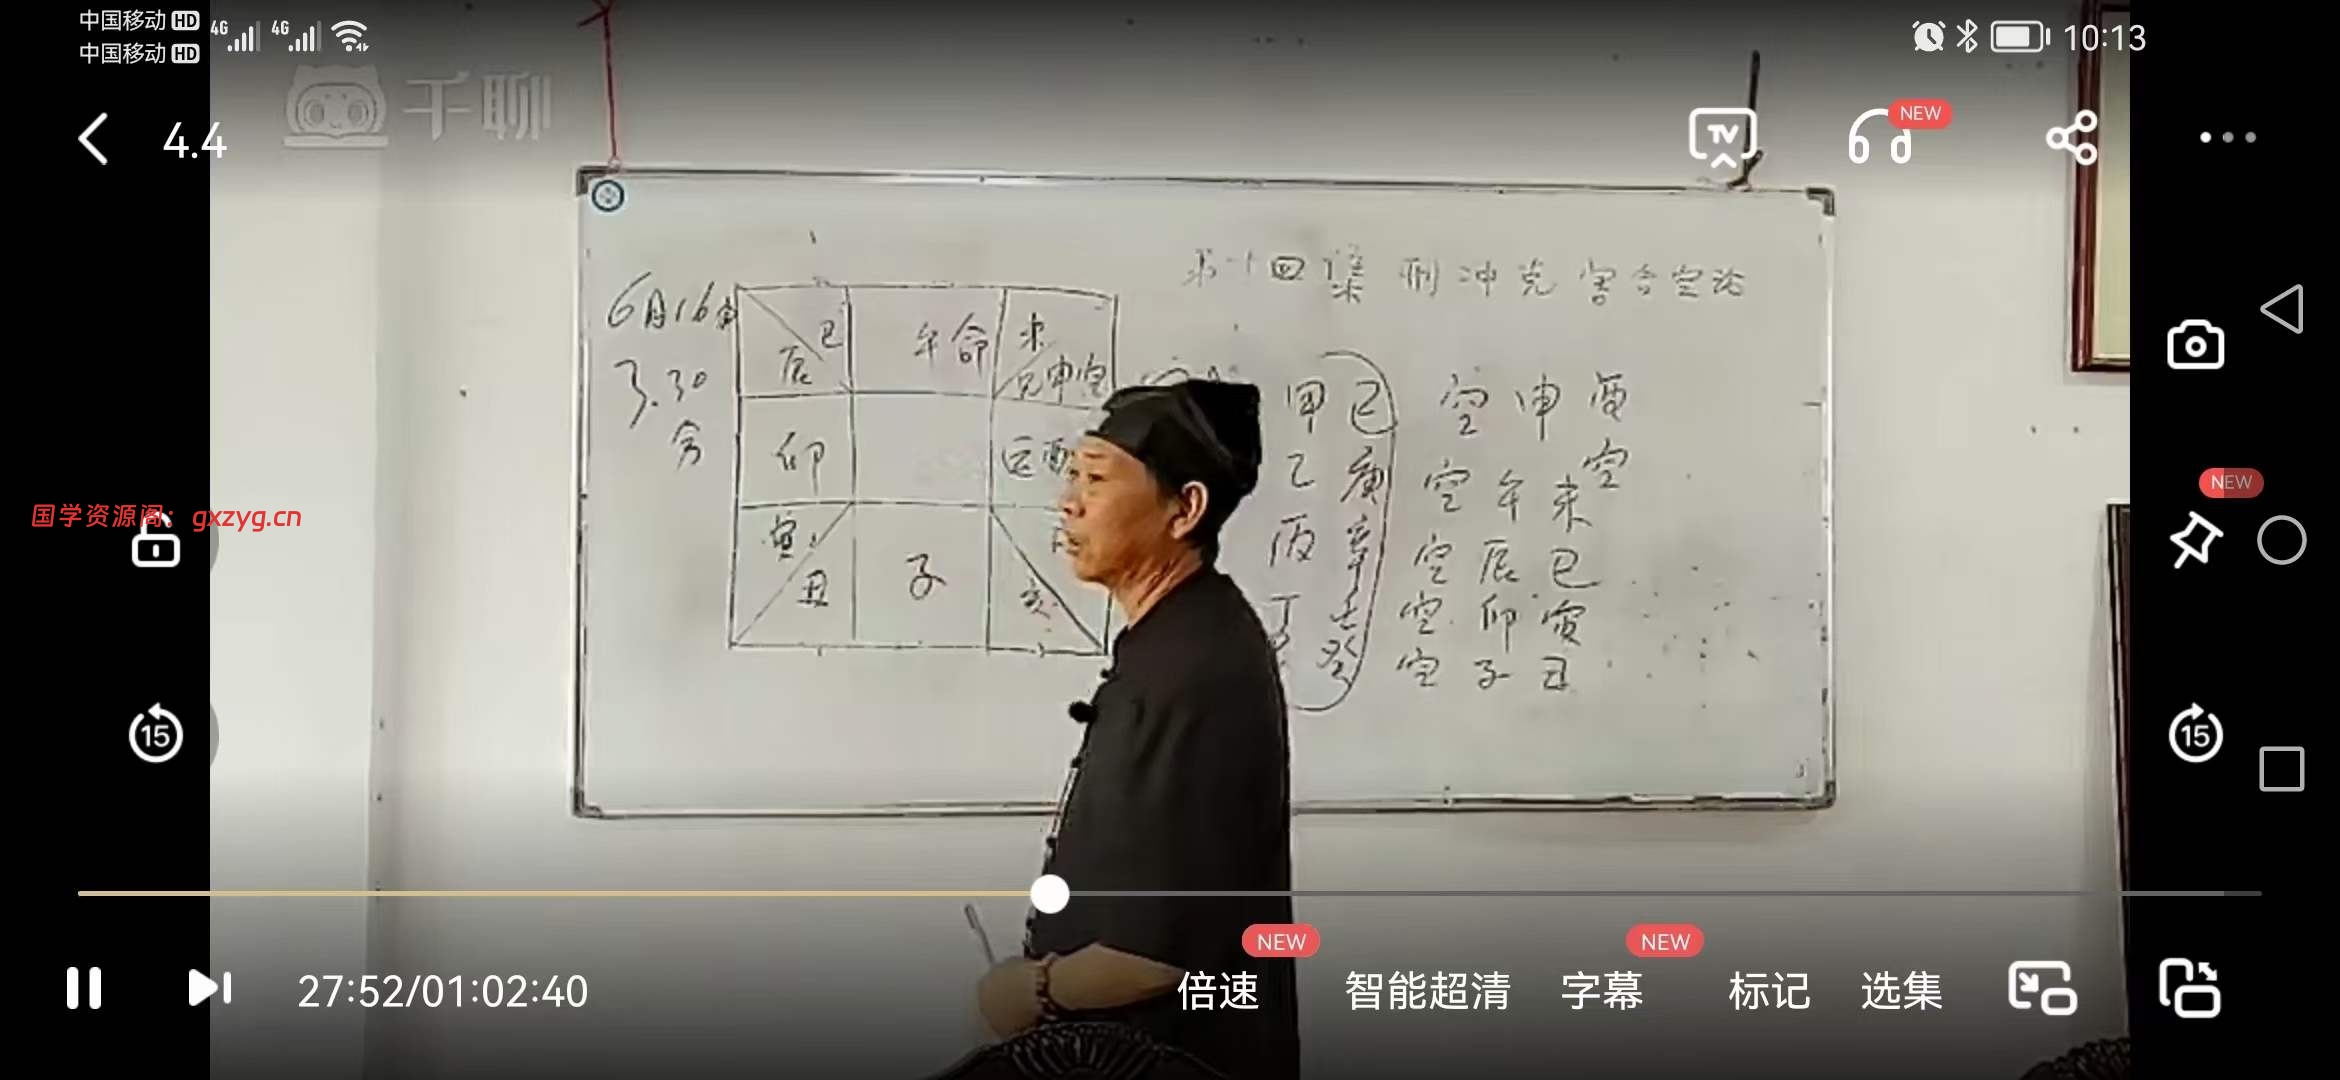 中国移动 HD 4G 4G 10:13
中国移动 HD
千聊
4.4
TV NEW
第十四集 刑冲克害合空论
6月16
3.30
分
巳 午命 未
辰 兄申空
甲己 空申酉
卯 酉 乙庚 空午未 空
国学资源阁：gxzyg.cn
NEW
寅 丙辛 空辰巳
丑 子 亥 丁壬 空卯寅
癸 空子丑
15 15
NEW NEW
27:52/01:02:40 倍速 智能超清 字幕 标记 选集